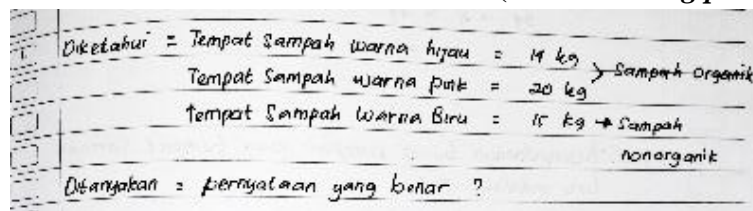 1. Diketahui = Tempat Sampah warna hijau = 14 kg
Tempat Sampah warna pink = 20 kg > Sampah organik
Tempat Sampah warna Biru = 15 kg → Sampah
nonorganik
Ditanyakan = pernyataan yang benar ?